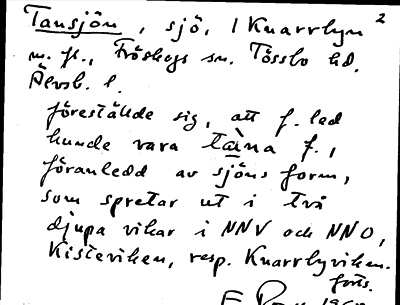 2
Tansjön, sjö, 1 Knarrbyn
m. fl., Fröskogs sn. Tössbo hd.
Älvsb. l.
föreställde sig, att f. led
kunde vara tàna f.,
föranledd av sjöns form,
som spretar ut i två
djupa vikar i NNV och NNO,
Kisteviken, resp. Knarrbyviken.
forts.